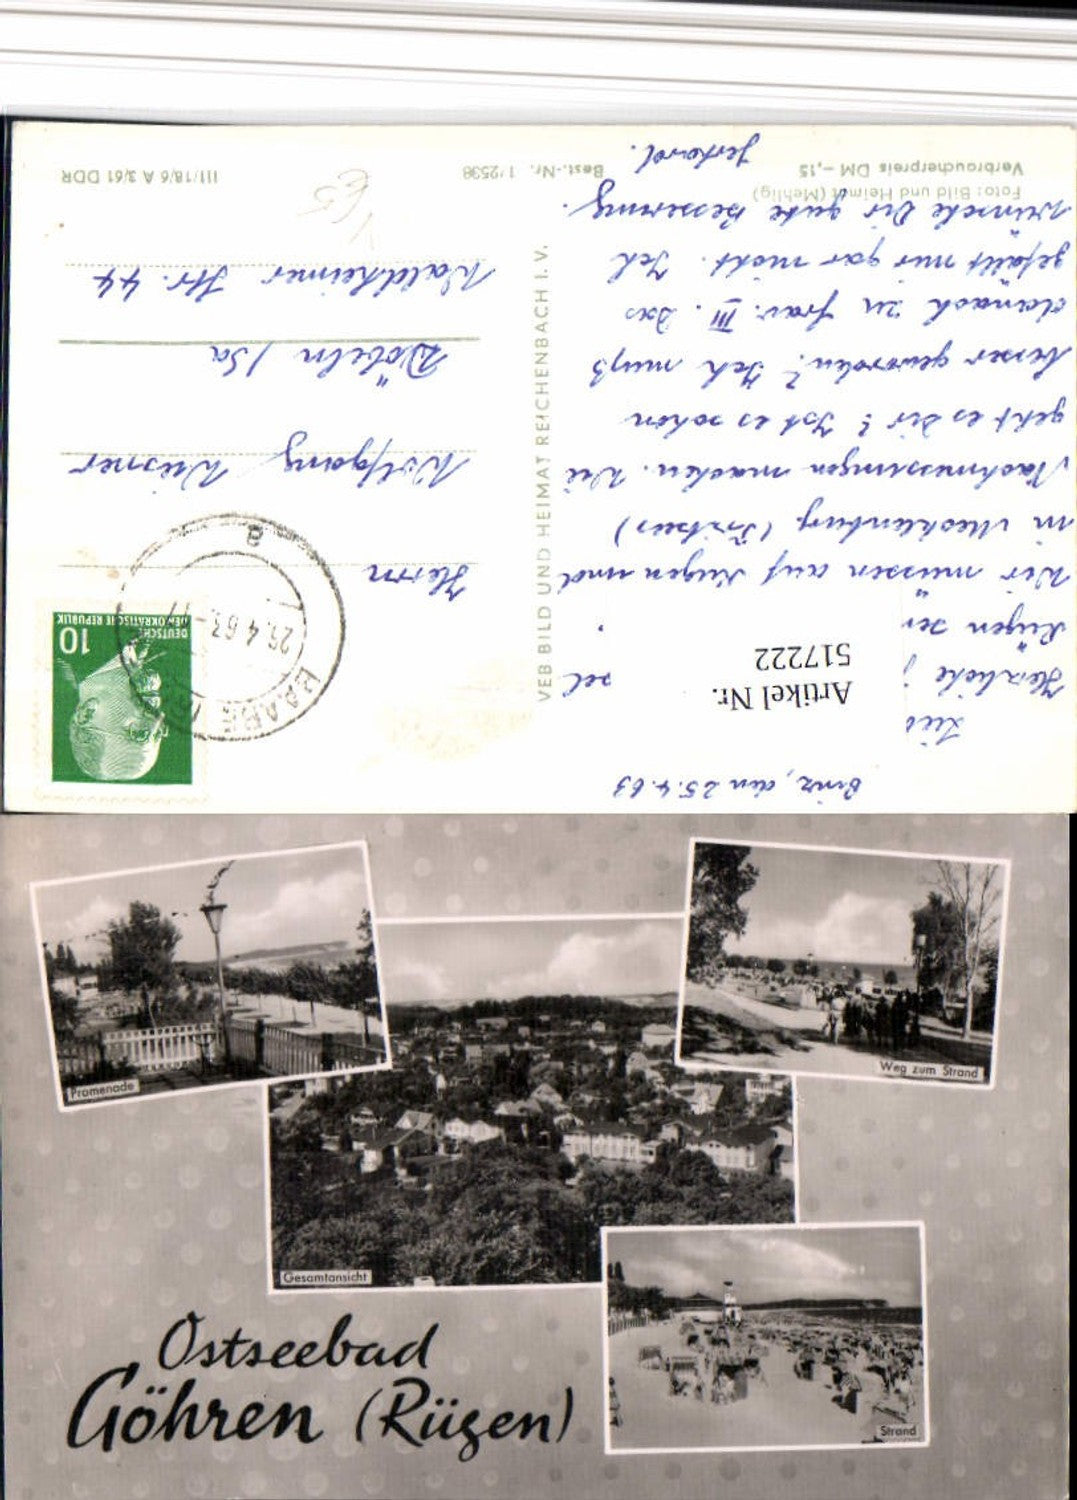 Binz, den 25.4.63
Herzliche
Rügen sen
Wir müssen auf Rügen und
in Mecklenburg
Nachmessungen machen. Wie
geht es Dir? Ist es schon
besser geworden? Ich muß
danach zu Frau. III. Das
gefällt mir gar nicht. Ich
wünsche Dir gute Besserung.
Foto: Bild und Heimat (Mehlig)
Verbraucherpreis DM –,15
Artikel Nr.
517222
VEB BILD UND HEIMAT REICHENBACH I. V.
Best.-Nr. 1/2538
DEUTSCHE
DEMOKRATISCHE REPUBLIK
10
25.4.63.-17
a
Herrn
Wolfgang Wiesner
Döbeln / Sa
Waldheimer Str. 44
III/18/6 A 3/61 DDR
Promenade
Weg zum Strand
Gesamtansicht
Strand
Ostseebad
Göhren (Rügen)